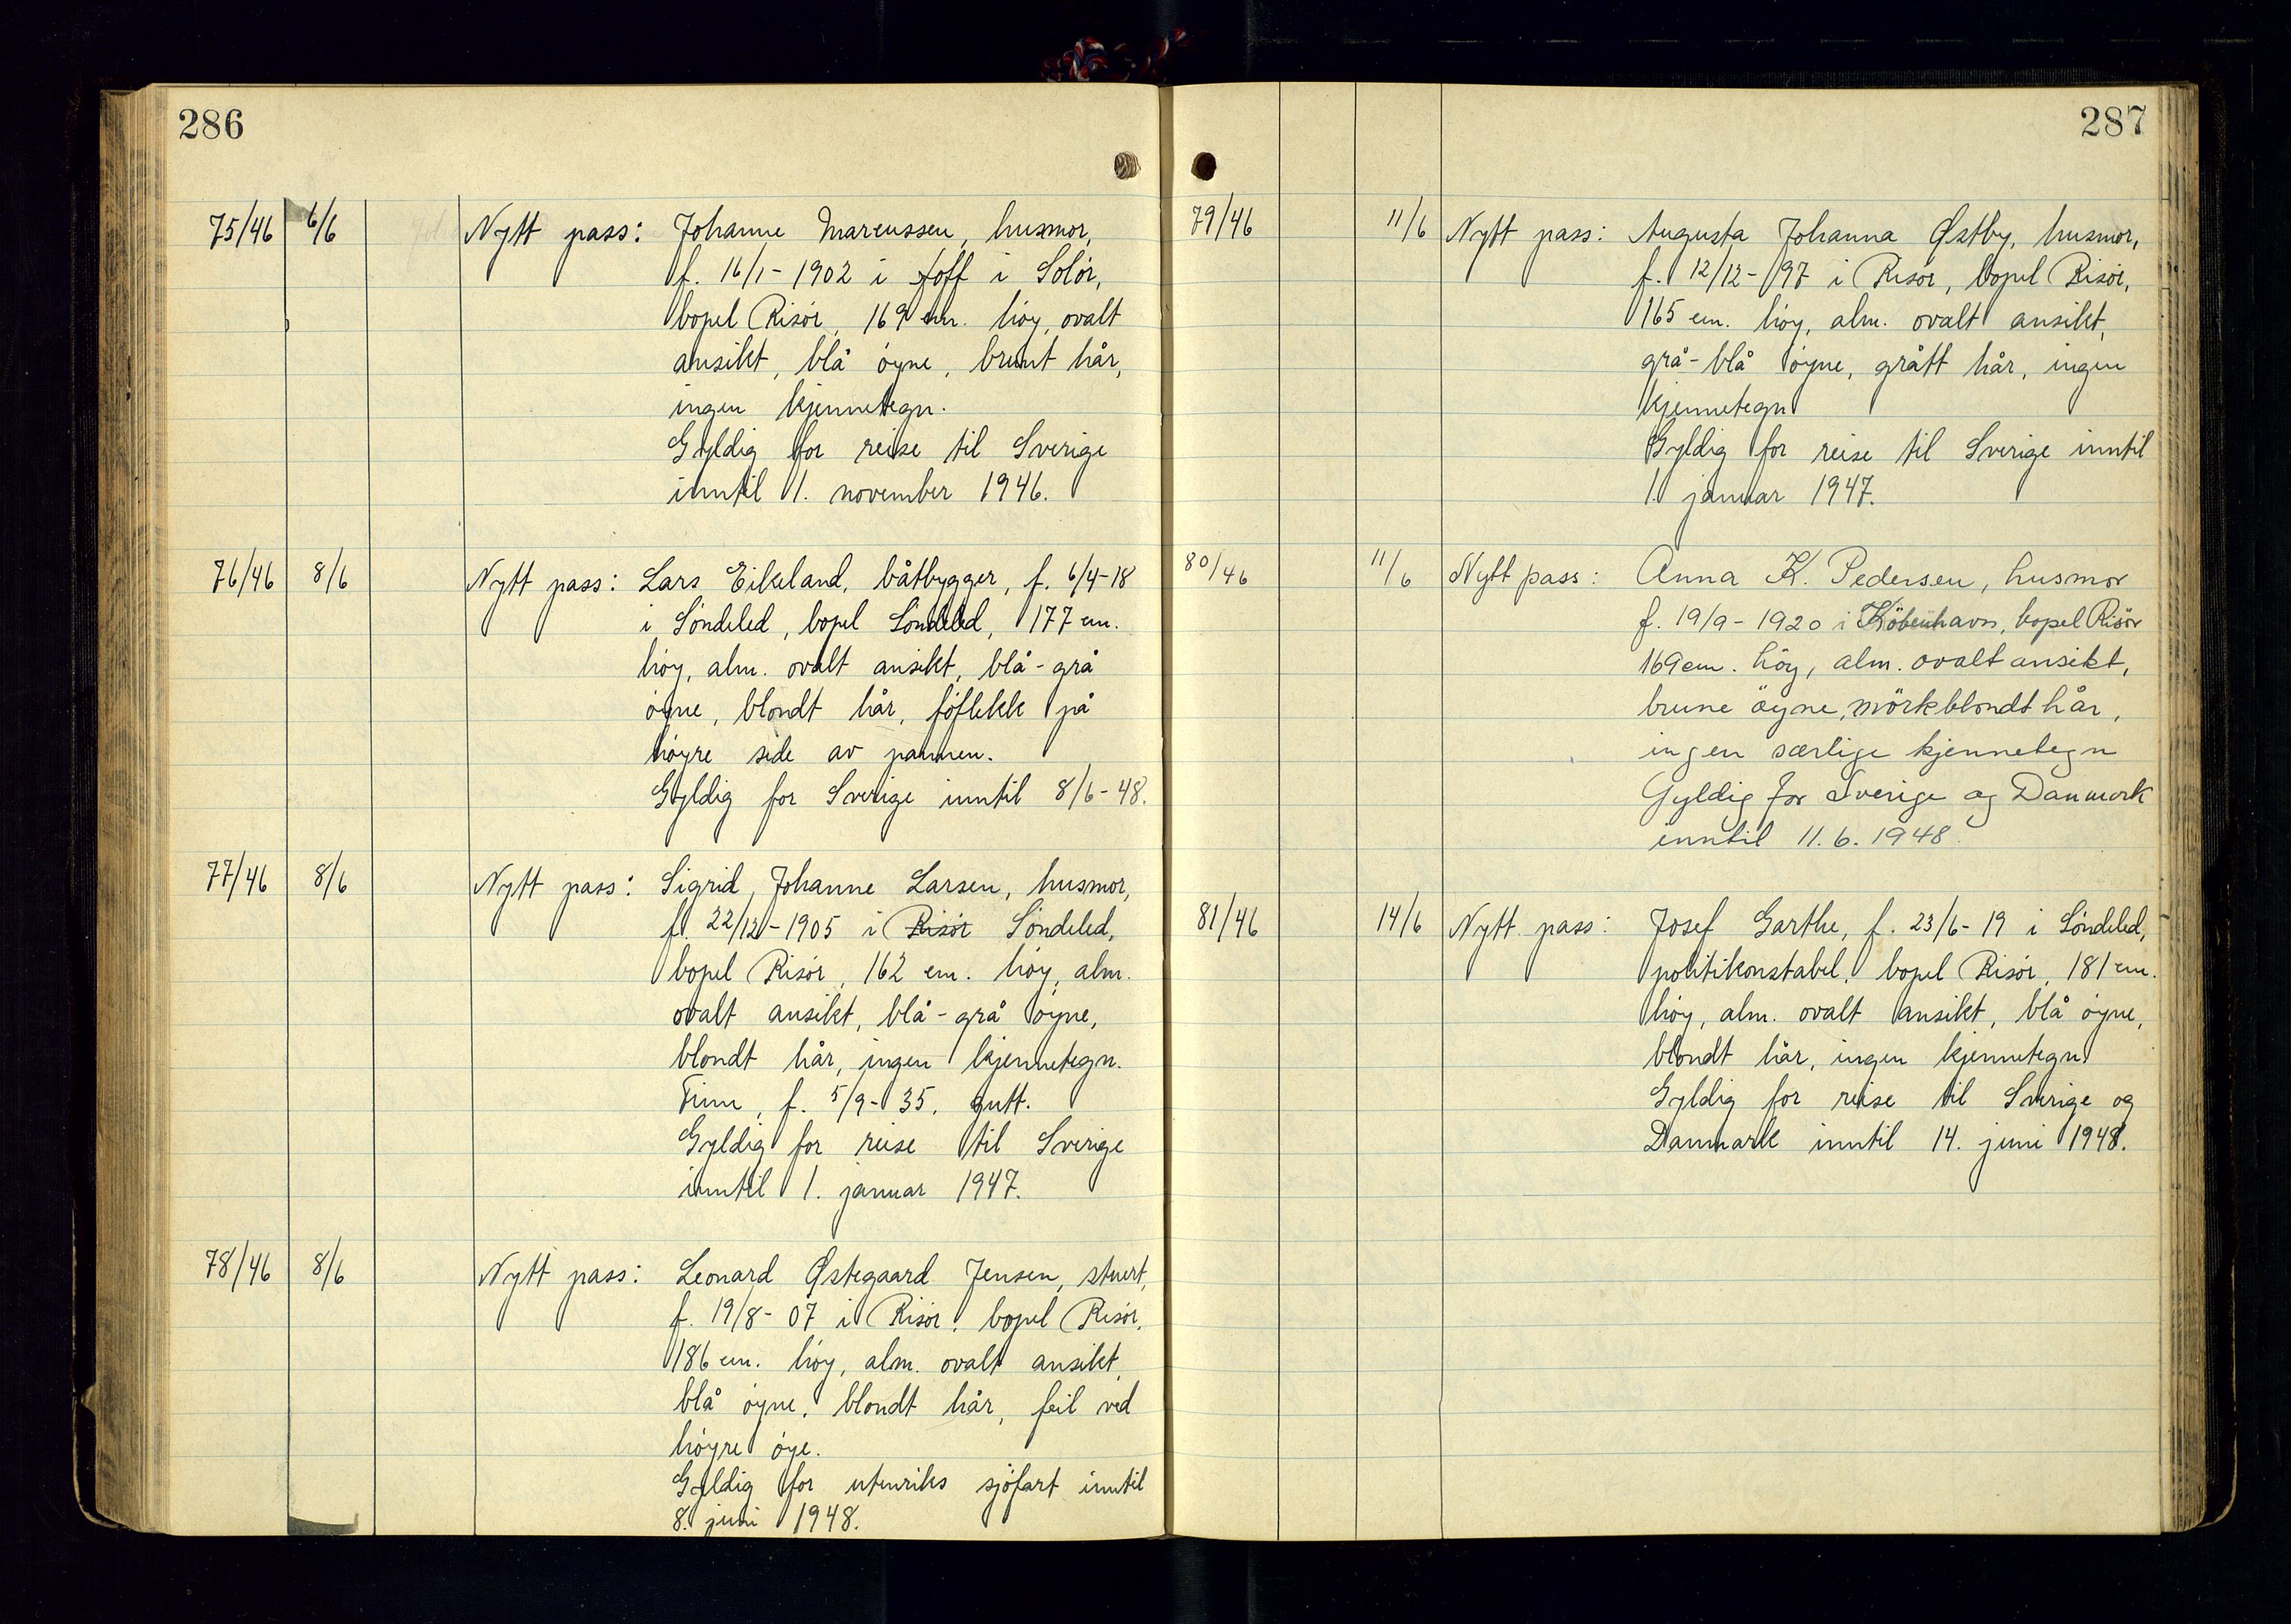 286
75/46 6/6 Nytt pass: Johanne Marcussen, husmor,
f. 16/1-1902 i Hoff i Solór,
bopel Risór, 169 cm. hóy, ovalt
ansikt, blå óyne, brunt hår,
ingen kjennetegn.
Gyldig for reise til Sverige
inntil 1. november 1946.
76/46 8/6 Nytt pass: Lars Eikeland, båtbygger, f. 6/4-18
i Sóndeled, bopel Sóndeled, 177 cm.
hóy, alm. ovalt ansikt, blå-grå
óyne, blondt hår, fóflekk på
hóyre side av pannen.
Gyldig for Sverige inntil 8/6-48.
77/46 8/6 Nytt pass: Sigrid Johanne Larsen, husmor,
f. 22/12-1905 i Risór Sóndeled,
bopel Risór, 162 cm. hóy, alm.
ovalt ansikt, blå-grå óyne,
blondt hår, ingen kjennetegn.
Finn, f. 5/9-35, gutt.
Gyldig for reise til Sverige
inntil 1. januar 1947.
78/46 8/6 Nytt pass: Leonard Østegaard Jensen, stuert,
f. 19/8-07 i Risór, bopel Risór,
186 cm. hóy, alm. ovalt ansikt,
blå óyne, blondt hår, feil ved
hóyre óye.
Gyldig for utenriks sjófart inntil
8. juni 1948.
287
79/46 11/6 Nytt pass: Augusta Johanna Østby, husmor,
f. 12/12-97 i Risór, bopel Risór,
165 cm. hóy, alm. ovalt ansikt,
grå-blå óyne, grått hår, ingen
kjennetegn
Gyldig for reise til Sverige inntil
1. januar 1947.
80/46 11/6 Nytt pass: Anna K. Pedersen, husmor
f. 19/9-1920 i Köbenhavn, bopel Risör
169 cm. höy, alm. ovalt ansikt,
brune öyne, mörkblondt hår,
ingen særlige kjennetegn
Gyldig for Sverige og Danmark
inntil 11.6.1948.
81/46 14/6 Nytt pass: Josef Garthe, f. 23/6-19 i Sóndeled,
politikonstabel, bopel Risór, 181 cm.
hóy, alm. ovalt ansikt, blå óyne,
blondt hår, ingen kjennetegn
Gyldig for reise til Sverige og
Danmark inntil 14. juni 1948.